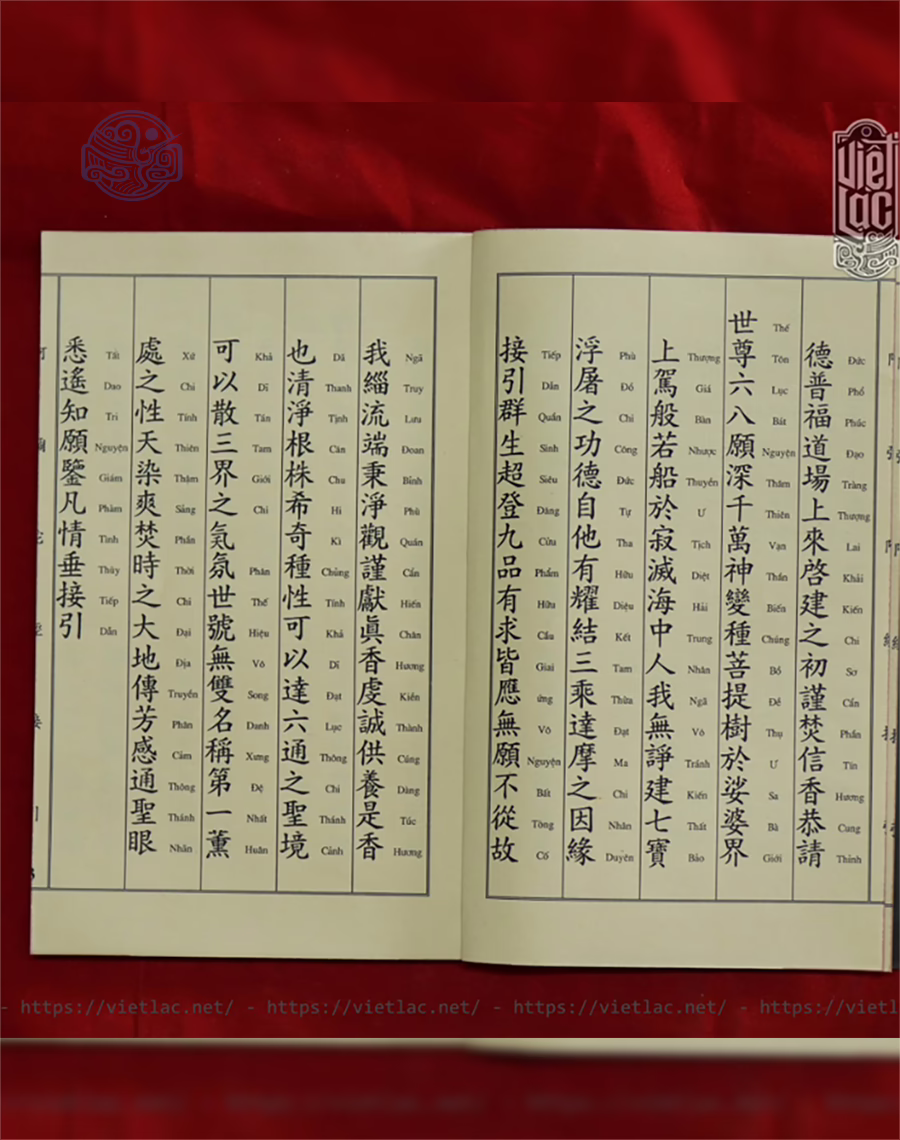 Đức Phổ Phúc Đạo Tràng Thượng Lai Khải Kiến Chi Sơ Cẩn Phần Tín Hương Cung Thỉnh
德普福道場上來啓建之初謹焚信香恭請
Thế Tôn Lục Bát Nguyện Thâm Thiên Vạn Thần Biến Chúng Bồ Đề Thụ Ư Sa Bà Giới
世尊六八願深千萬神變種菩提樹於娑婆界
Thượng Giá Bàn Nhược Thuyền Ư Tịch Diệt Hải Trung Nhân Ngã Vô Tránh Kiến Thất Bảo
上駕般若船於寂滅海中人我無諍建七寶
Phù Đồ Chi Công Đức Tự Tha Hữu Diệu Kết Tam Thừa Đạt Ma Chi Nhân Duyên
浮屠之功德自他有耀結三乘達摩之因緣
Tiếp Dẫn Quần Sinh Siêu Đăng Cửu Phẩm Hữu Cầu Giai ứng Vô Nguyện Bất Tòng Cố
接引群生超登九品有求皆應無願不從故
Ngã Truy Lưu Đoan Bỉnh Phù Quán Cẩn Hiến Chân Hương Kiền Thành Cúng Dàng Túc Hương
我緇流端秉淨觀謹獻眞香虔誠供養是香
Dã Thanh Tịnh Căn Chu Hi Kì Chủng Tính Khả Dĩ Đạt Lục Thông Chi Thánh Cảnh
也清淨根株希奇種性可以達六通之聖境
Khả Dĩ Tán Tam Giới Chi Phân Thế Hiệu Vô Song Danh Xưng Đệ Nhất Huân
可以散三界之氣氛世號無雙名稱第一薰
Xử Chi Tính Thiên Thậm Sảng Phần Thời Chi Đại Địa Truyền Phân Cảm Thông Thánh Nhãn
處之性天染爽焚時之大地傳芳感通聖眼
Tất Dao Tri Nguyện Giám Phàm Tình Thùy Tiếp Dẫn
悉遙知願鑒凡情垂接引
Việt Lạc
- https://vietlac.net/ - https://vietlac.net/ - https://vietlac.net/ - https://vietlac.net/